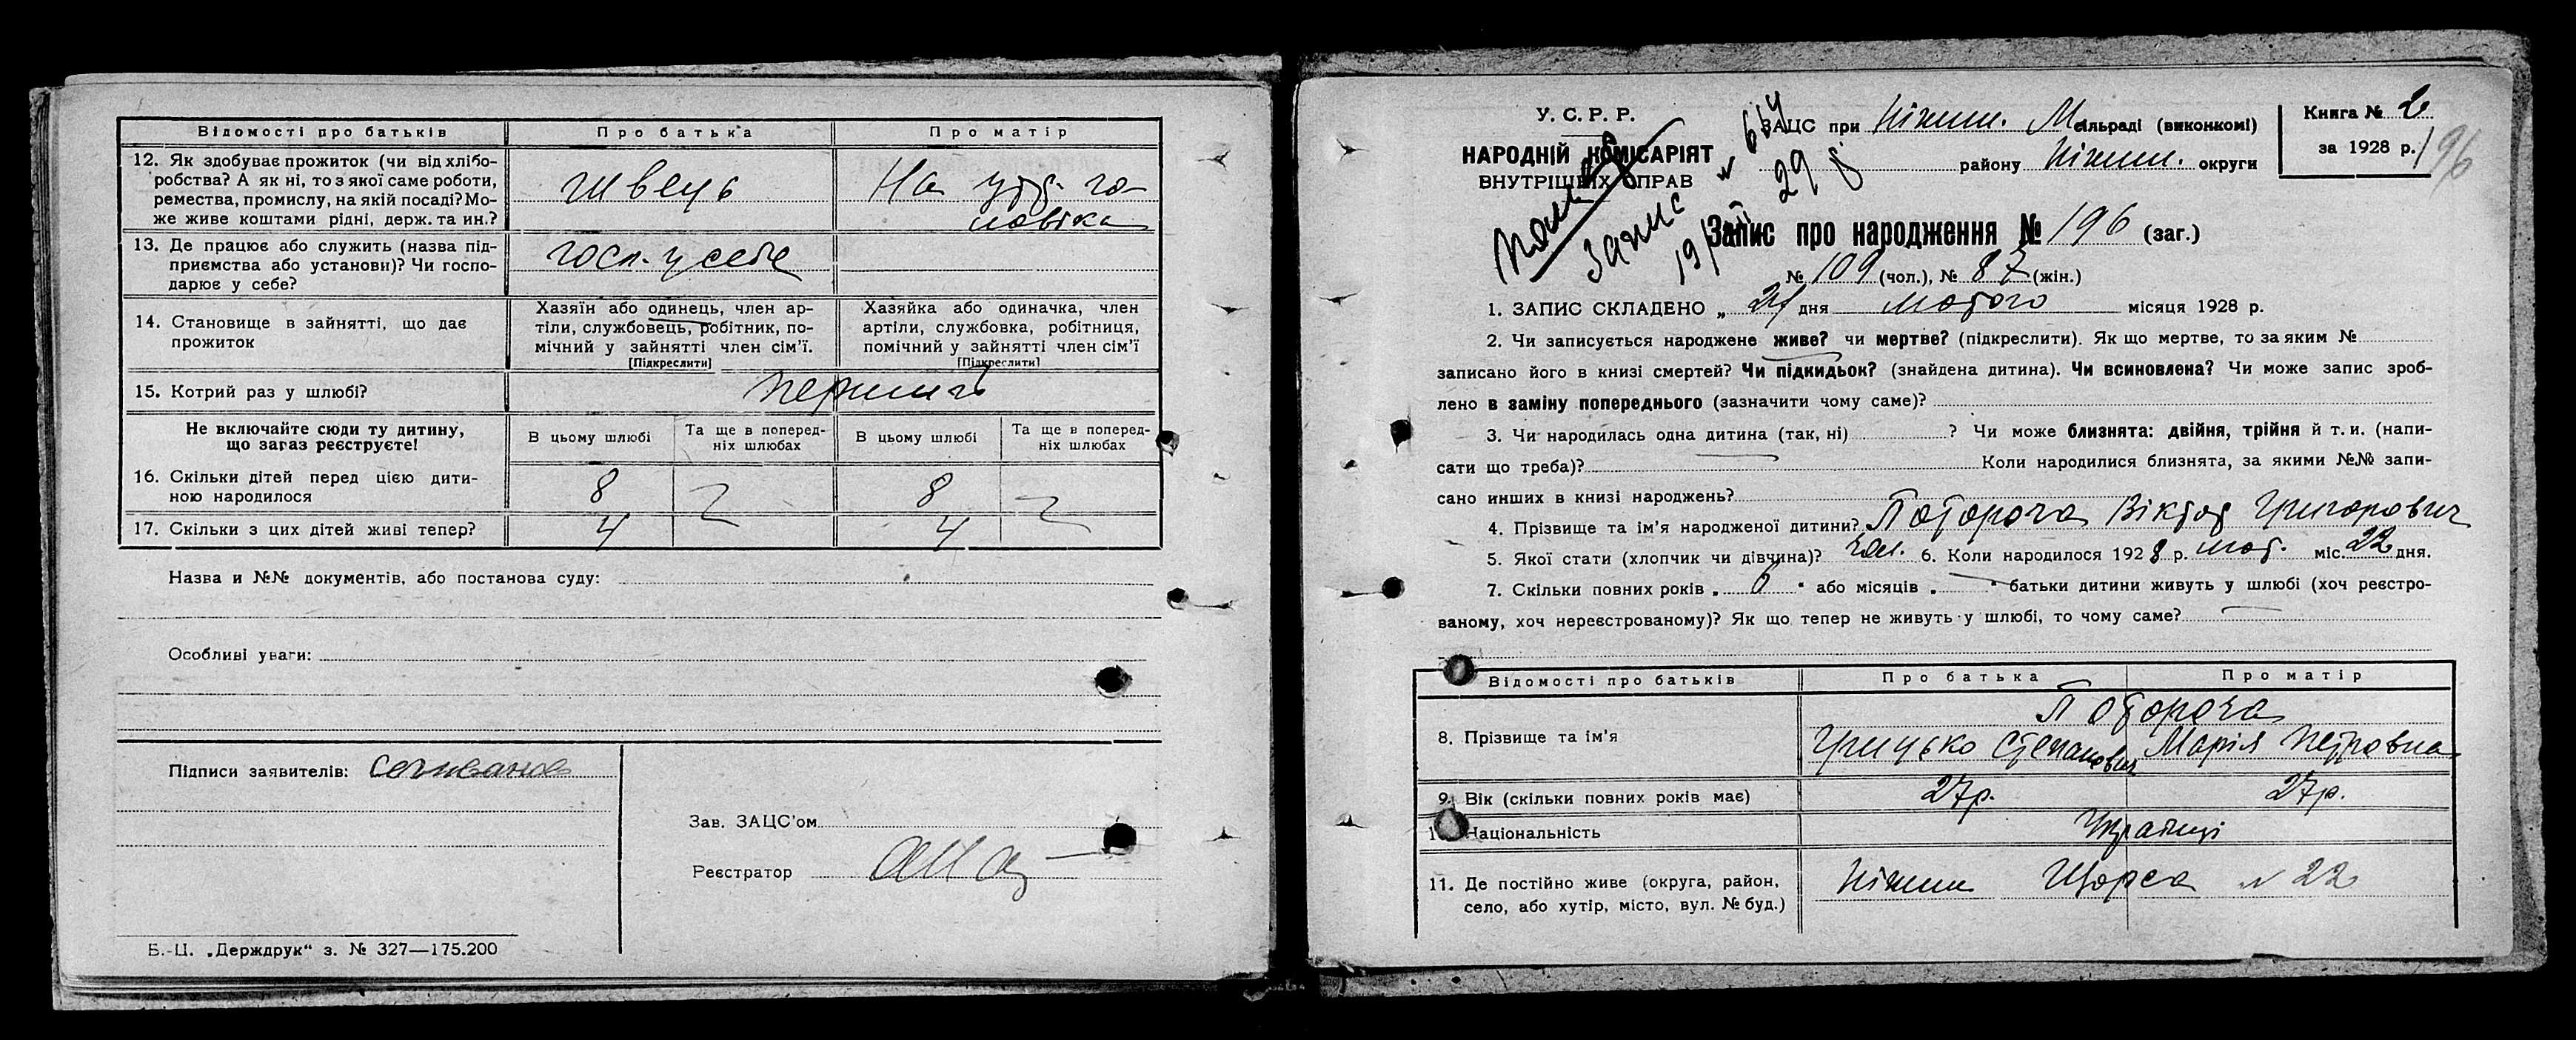 Відомості про батьків Про батька Про матір
12. Як здобуває прожиток (чи від хлібо-
робства? А як ні, то з якої саме роботи,
ремества, промислу, на якій посаді? Мо-
же живе коштами рідні, держ. та ин.?
Швець
На утр. чо-
ловіка
13. Де працює або служить (назва під-
приємства або установи)? Чи госпо-
дарює у себе?
госп. у себе
14. Становище в зайнятті, що дає
прожиток
Хазяїн або одинець, член ар-
тіли, службовець, робітник, по-
мічний у зайнятті член сім'ї.
[Підкреслити]
Хазяйка або одиначка, член
артіли, службовка, робітниця,
помічний у зайнятті член сім'ї
[Підкреслити]
15. Котрий раз у шлюбі?
Не включайте сюди ту дитину,
що зараз реєструєте!
В цьому шлюбі
Та ще в поперед-
ніх шлюбах
В цьому шлюбі
Та ще в поперед-
ніх шлюбах
16. Скільки дітей перед цією дити-
ною народилося
8 8
17. Скільки з цих дітей живі тепер? 4 4
Назва и №№ документів, або постанова суду:
Особливі уваги:
Підписи заявителів:
Зав. ЗАЦС'ом
Реєстратор
Б.-Ц. „Держдрук“ з. № 327—175.200
У. С. Р. Р.
НАРОДНІЙ КОМІСАРІЯТ
ВНУТРІШНІХ СПРАВ
Запис
ЗАЦС при Ніжин. М сільраді (виконкомі)
району Ніжин. округи
Книга № 2
за 1928 р. 196
Запис про народження № 196 (заг.)
№ 109 (чол.), № 87 (жін.)
1. ЗАПИС СКЛАДЕНО „ дня лютого місяця 1928 р.
2. Чи записується народжене живе? чи мертве? (підкреслити). Як що мертве, то за яким №
записано його в книзі смертей? Чи підкидьок? (знайдена дитина). Чи всиновлена? Чи може запис зроб-
лено в заміну попереднього (зазначити чому саме)?
3. Чи народилась одна дитина (так, ні) ? Чи може близнята: двійня, трійня й т. и. (напи-
сати що треба)? Коли народилися близнята, за якими №№ запи-
сано инших в книзі народжень?
4. Прізвище та ім'я народженої дитини? Поторочa Віктор Григорович
5. Якої стати (хлопчик чи дівчина)? чол. 6. Коли народилося 1928 р. лют. міс. 22 дня.
7. Скільки повних років „ 6 “ або місяців „ “ батьки дитини живуть у шлюбі (хоч реєстро-
ваному, хоч нереєстрованому)? Як що тепер не живуть у шлюбі, то чому саме?
Відомості про батьків Про батька Про матір
8. Прізвище та ім'я
Потороча
Грицько Степанович Марія Петровна
9. Вік (скільки повних років має) 27р. 27р.
Національність Українці
11. Де постійно живе (округа, район,
село, або хутір, місто, вул. № буд.)
Ніжин Щорса № 22